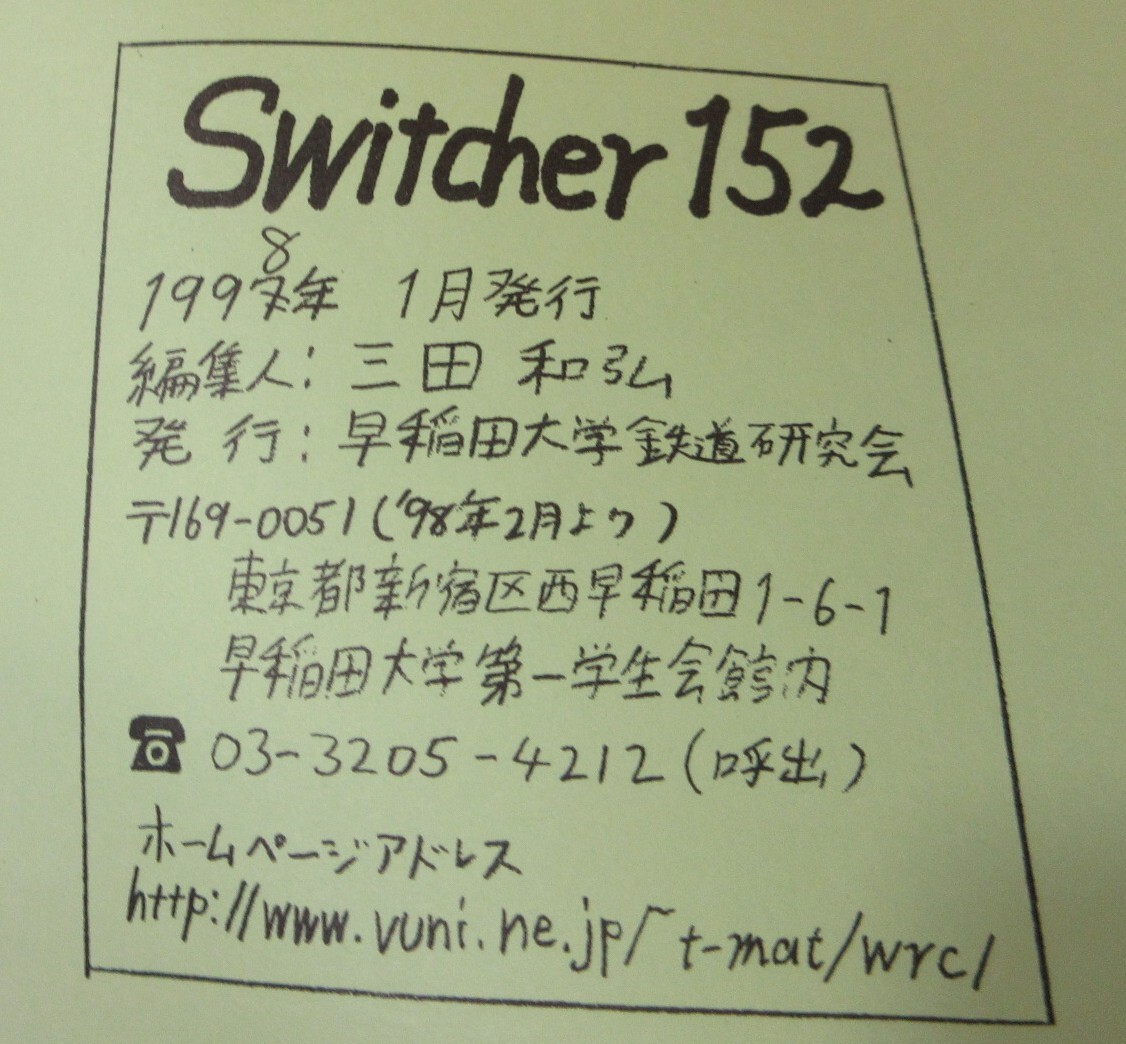 Switcher 152
1998年 1月発行
編集人: 三田 和弘
発 行: 早稲田大学鉄道研究会
〒169-0051('98年2月より)
東京都新宿区西早稲田1-6-1
早稲田大学第一学生会館内
☎ 03-3205-4212(呼出)
ホームページアドレス
http://www.vuni.ne.jp/~t-mat/wrc/